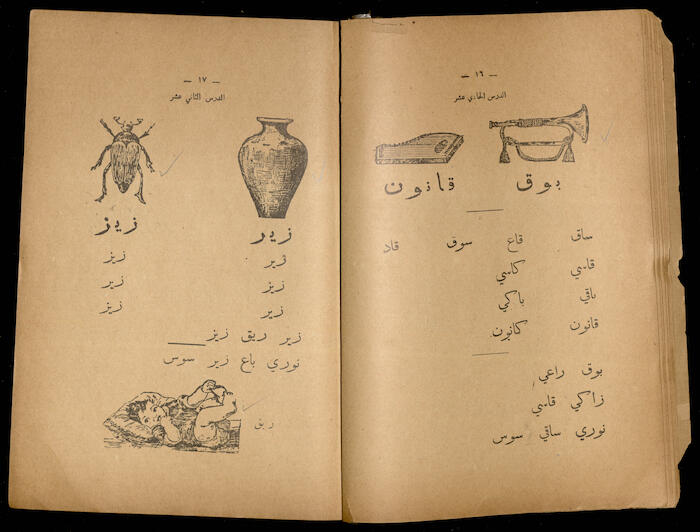 — ١٦ —
الدرس الحادي عشر
بوق قانون
ساق قاع سوق قاد
قاسي كاسي
باقي باكي
قانون كانون
بوق راعي
زاكي قاسي
نوري ساقي سوس
— ١٧ —
الدرس الثاني عشر
زير زيز
زير زيز
زيز زير
زير زيز
زير ريق زيز
نوري باع زير سوس
ريق